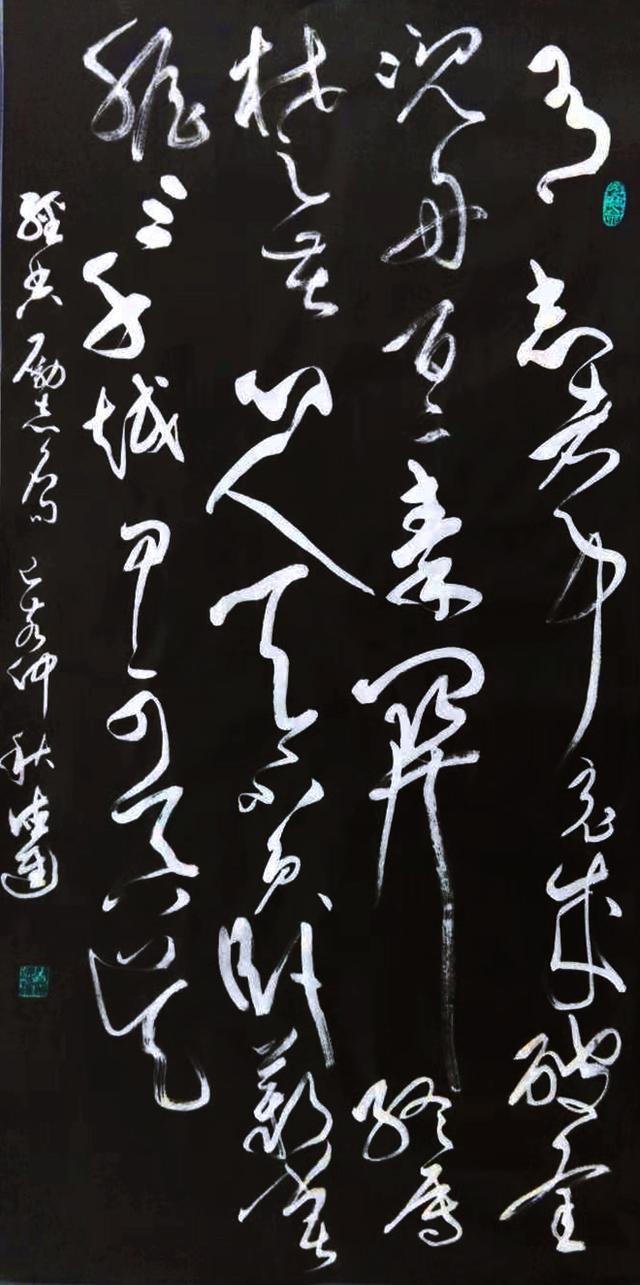 有志者事竟成破釜
沉舟百二秦关终属
楚苦心人天不负卧薪尝
胆三千越甲可吞吴
经典励志名句 己亥仲秋